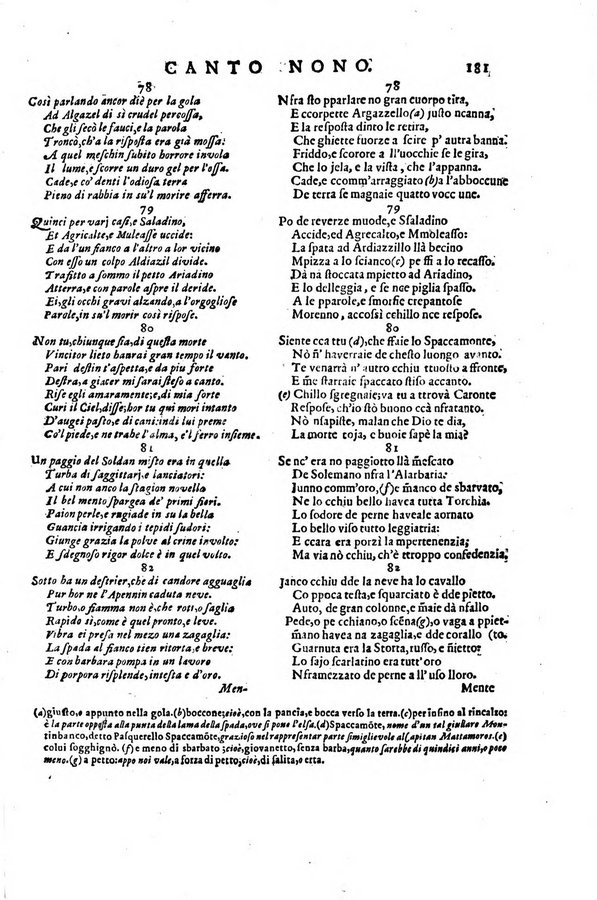 CANTO NONO. 181
78
Così parlando ancor diè per la gola
Ad Algazel di sì crudel percossa,
Che gli secò le fauci, e la parola
Troncò, ch'a la risposta era già mossa:
A quel meschin subito horrore invola
Il lume, e scorre un duro gel per l'ossa.
Cade, e co' denti l'odiosa terra
Pieno di rabbia in su'l morire afferra.
79
Quinci per varj casi, e Saladino,
Et Agricalte, e Muleasse uccide:
E da l'un fianco a l'altro a lor vicino
Con esso un colpo Aldiazil divide.
Trafitto a sommo il petto Ariadino
Atterra, e con parole aspre il deride.
Ei, gli occhi gravi alzando, a l'orgogliose
Parole, in su'l morir così rispose.
80
Non tu, chiunque sia, di questa morte
Vincitor lieto haurai gran tempo il vanto.
Pari destin t'aspetta, e da piu forte
Destra, a giacer mi sarai steso a canto.
Rise egli amaramente; e, di mia sorte
Curi il Ciel, disse; hor tu qui mori intanto
D'augei pasto, e di cani: indi lui preme
Co'l piede; e ne trabe l'alma, e'l ferro insieme.
81
Un paggio del Soldan misto era in quella
Turba di sagittarj, e lanciatori:
A cui non anco la stagion novella
Il bel mento spargea de' primi fiori.
Paion perle, e rugiade in su la bella
Guancia irrigando i tepidi sudori:
Giunge grazia la polve al crine incolto:
E sdegnoso rigor dolce è in quel volto.
82
Sotto ha un destrier, che di candore agguaglia
Pur hor ne l'Apennin caduta neve.
Turbo, o fiamma non è, che roti, o saglia
Rapido sì, come è quel pronto, e leve.
Vibra ei presa nel mezo una zagaglia:
La spada al fianco tien ritorta, e breve:
E con barbara pompa in un lavoro
Di porpora risplende, intesta e d'oro.
Men-
78
Nfra sto pparlare no gran cuorpo tira,
E ccorpette Argazzello(a) justo ncanna;
E la resposta dinto le retira,
Che ghiette fuorze a scire p' autra banna.
Friddo, e scorore a ll'uocchie se le gira,
Che lo jela, e la vista, che l'appanna.
Cade, e ccomm'arraggiato (b)a l'abboccune
De terra se magnaie quatto vocc une.
79
Po de reverze muode, e Ssaladino
Accide, ed Agrecalto, e Mmoleasso:
La spata ad Ardiazzillo llà becino
Mpizza a lo scianco(c) pe ffi a lo recasso.
Dà na stoccata mpietto ad Ariadino,
E lo delleggia, e se nce piglia spasso.
A lle pparole, e smorfie crepantose
Morenno, accossì cehillo nce respose.
80
Siente cca ttu (d), che ffaie lo Spaccamonte,
Nõ n' haverraie de chesto luongo avanto.
Te venarrà n' autro cchiu ttuosto a ffronte,
E m̃e starraie spaccato stiso accanto.
(e) Chillo sgregnaie; va tu a ttrovà Caronte
Respose, ch'io stò buono ccà nfratanto.
Nò nsapiste, malan che Dio te dia,
La morte toja, e buoie sapè la mia?
81
Se nc' era no paggiotto llà m̃escato
De Solemano nfra l'Alarbaria:
Junno comm'oro, (f)e manco de sbarvato,
Ne lo cchiu bello havea tutta Torchia.
Lo sodore de perne haveale aornato
Lo bello viso tutto leggiatria:
E ccara era porzì la mpertenenzia;
Ma via nò cchiu, ch'è ttroppo confedenzia;
82
Janco cchiu dde la neve ha lo cavallo
Co ppoca testa, e squarciato è dde pietto.
Auto, de gran colonne, e m̃aie dà nfallo
Pede, o pe cchiano, o scẽna(g), o vaga a ppiet-
m̃ano havea na zagaglia, e dde corallo (to.
Guarnuta era la Storta, russo, e nietto.
Lo sajo scarlatino era tutt'oro
Nframezzato de perne a ll'uso lloro.
Mente
(a) giusto, e appunto nella gola. (b) boccone; cioè, con la pancia, e bocca verso la terra. (c) per insino al rincalto:
è la parte opposta alla punta della lama della spada, ove si pone l'elsa. (d) Spaccamõte, nome d'un tal giullare Mon-
tinbanco, detto Pasquerello Spaccamõte, grazioso nel rappresentar parte simiglievole al Capitan Mattamoros. (e)
colui sogghignò. (f) e meno di sbarbato; cioè, giovanetto, senza barba, quanto sarebbe di quindici anni, o poco
meno. (g) a petto: appo noi vale, a forza di petto, cioè, di salita, o erta.